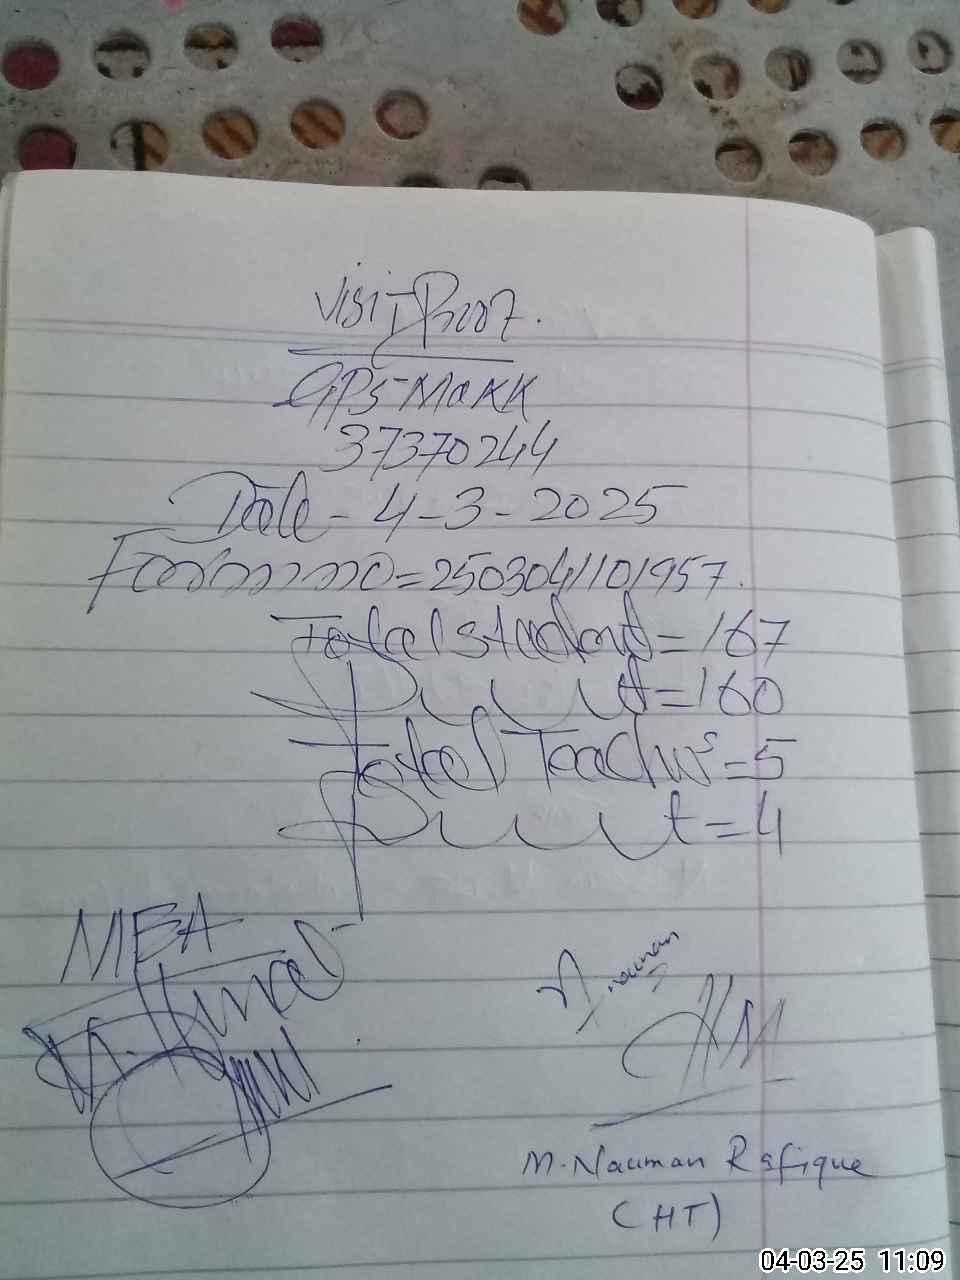 Visit Proof.
GPS Makk
37370244
Date - 4-3-2025
Form no = 2503041101957.
Total student = 167
P t = 160
Total Teachers = 5
P t = 4
MEA
A. nauman
HM
M. Nauman Rafique
(HT)
04-03-25 11:09